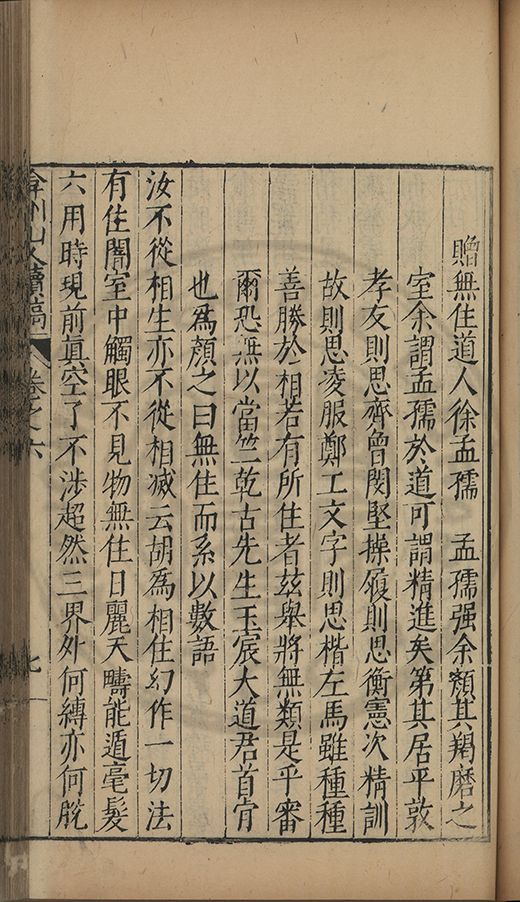 贈無住道人徐孟孺　孟孺强余顏其羯磨之
室余謂孟孺於道可謂精進矣第其居平敦
孝友則思齊曾閔堅操履則思衡憲次精訓
故則思凌服鄭工文字則思楷左馬雖種種
善勝於相若有所住者玆舉將無類是乎審
爾恐無以當竺乾古先生玉宸大道君首肯
也為顏之曰無住而系以數語
汝不從相生亦不從相滅云胡為相住幻作一切法
有住闇室中觸眼不見物無住日麗天疇能遁毫髮
六用時現前眞空了不涉超然三界外何縛亦何脫
弇州山人續稿　卷之六